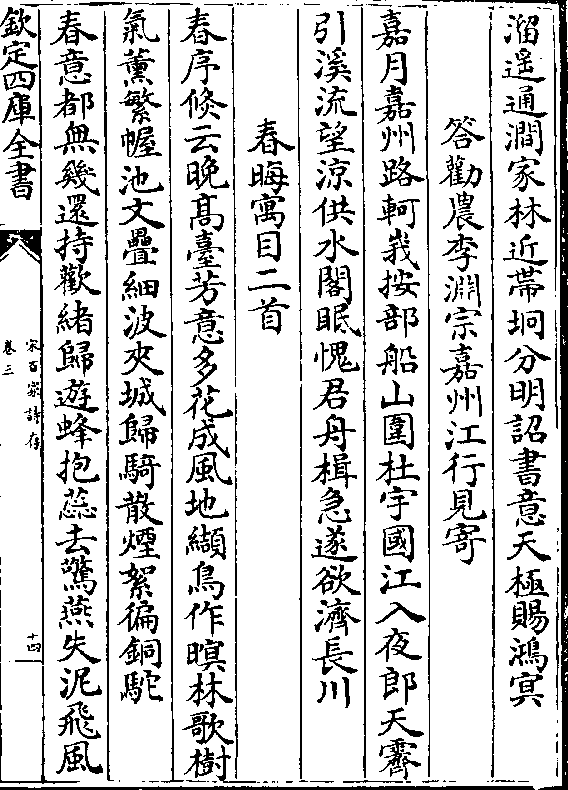 溜遥通澗家林近帶坰分明詔書意天極賜鴻㝠
答勸農李淵宗嘉州江行見寄
嘉月嘉州路軻峩按部船山圍杜宇國江入夜郎天霽
引溪流望涼供水閣眠愧君舟楫急遂欲濟長川
春晦寓目二首
春序倐云晚髙臺芳意多花成風地纈鳥作暝林歌樹
氣薰繁幄池文疊細波夾城歸騎散煙絮徧銅駝
春意都無幾還持歡緒歸遊蜂抱蕊去驚燕失泥飛風
欽定四庫全書
宋百家詩存
卷三
十四